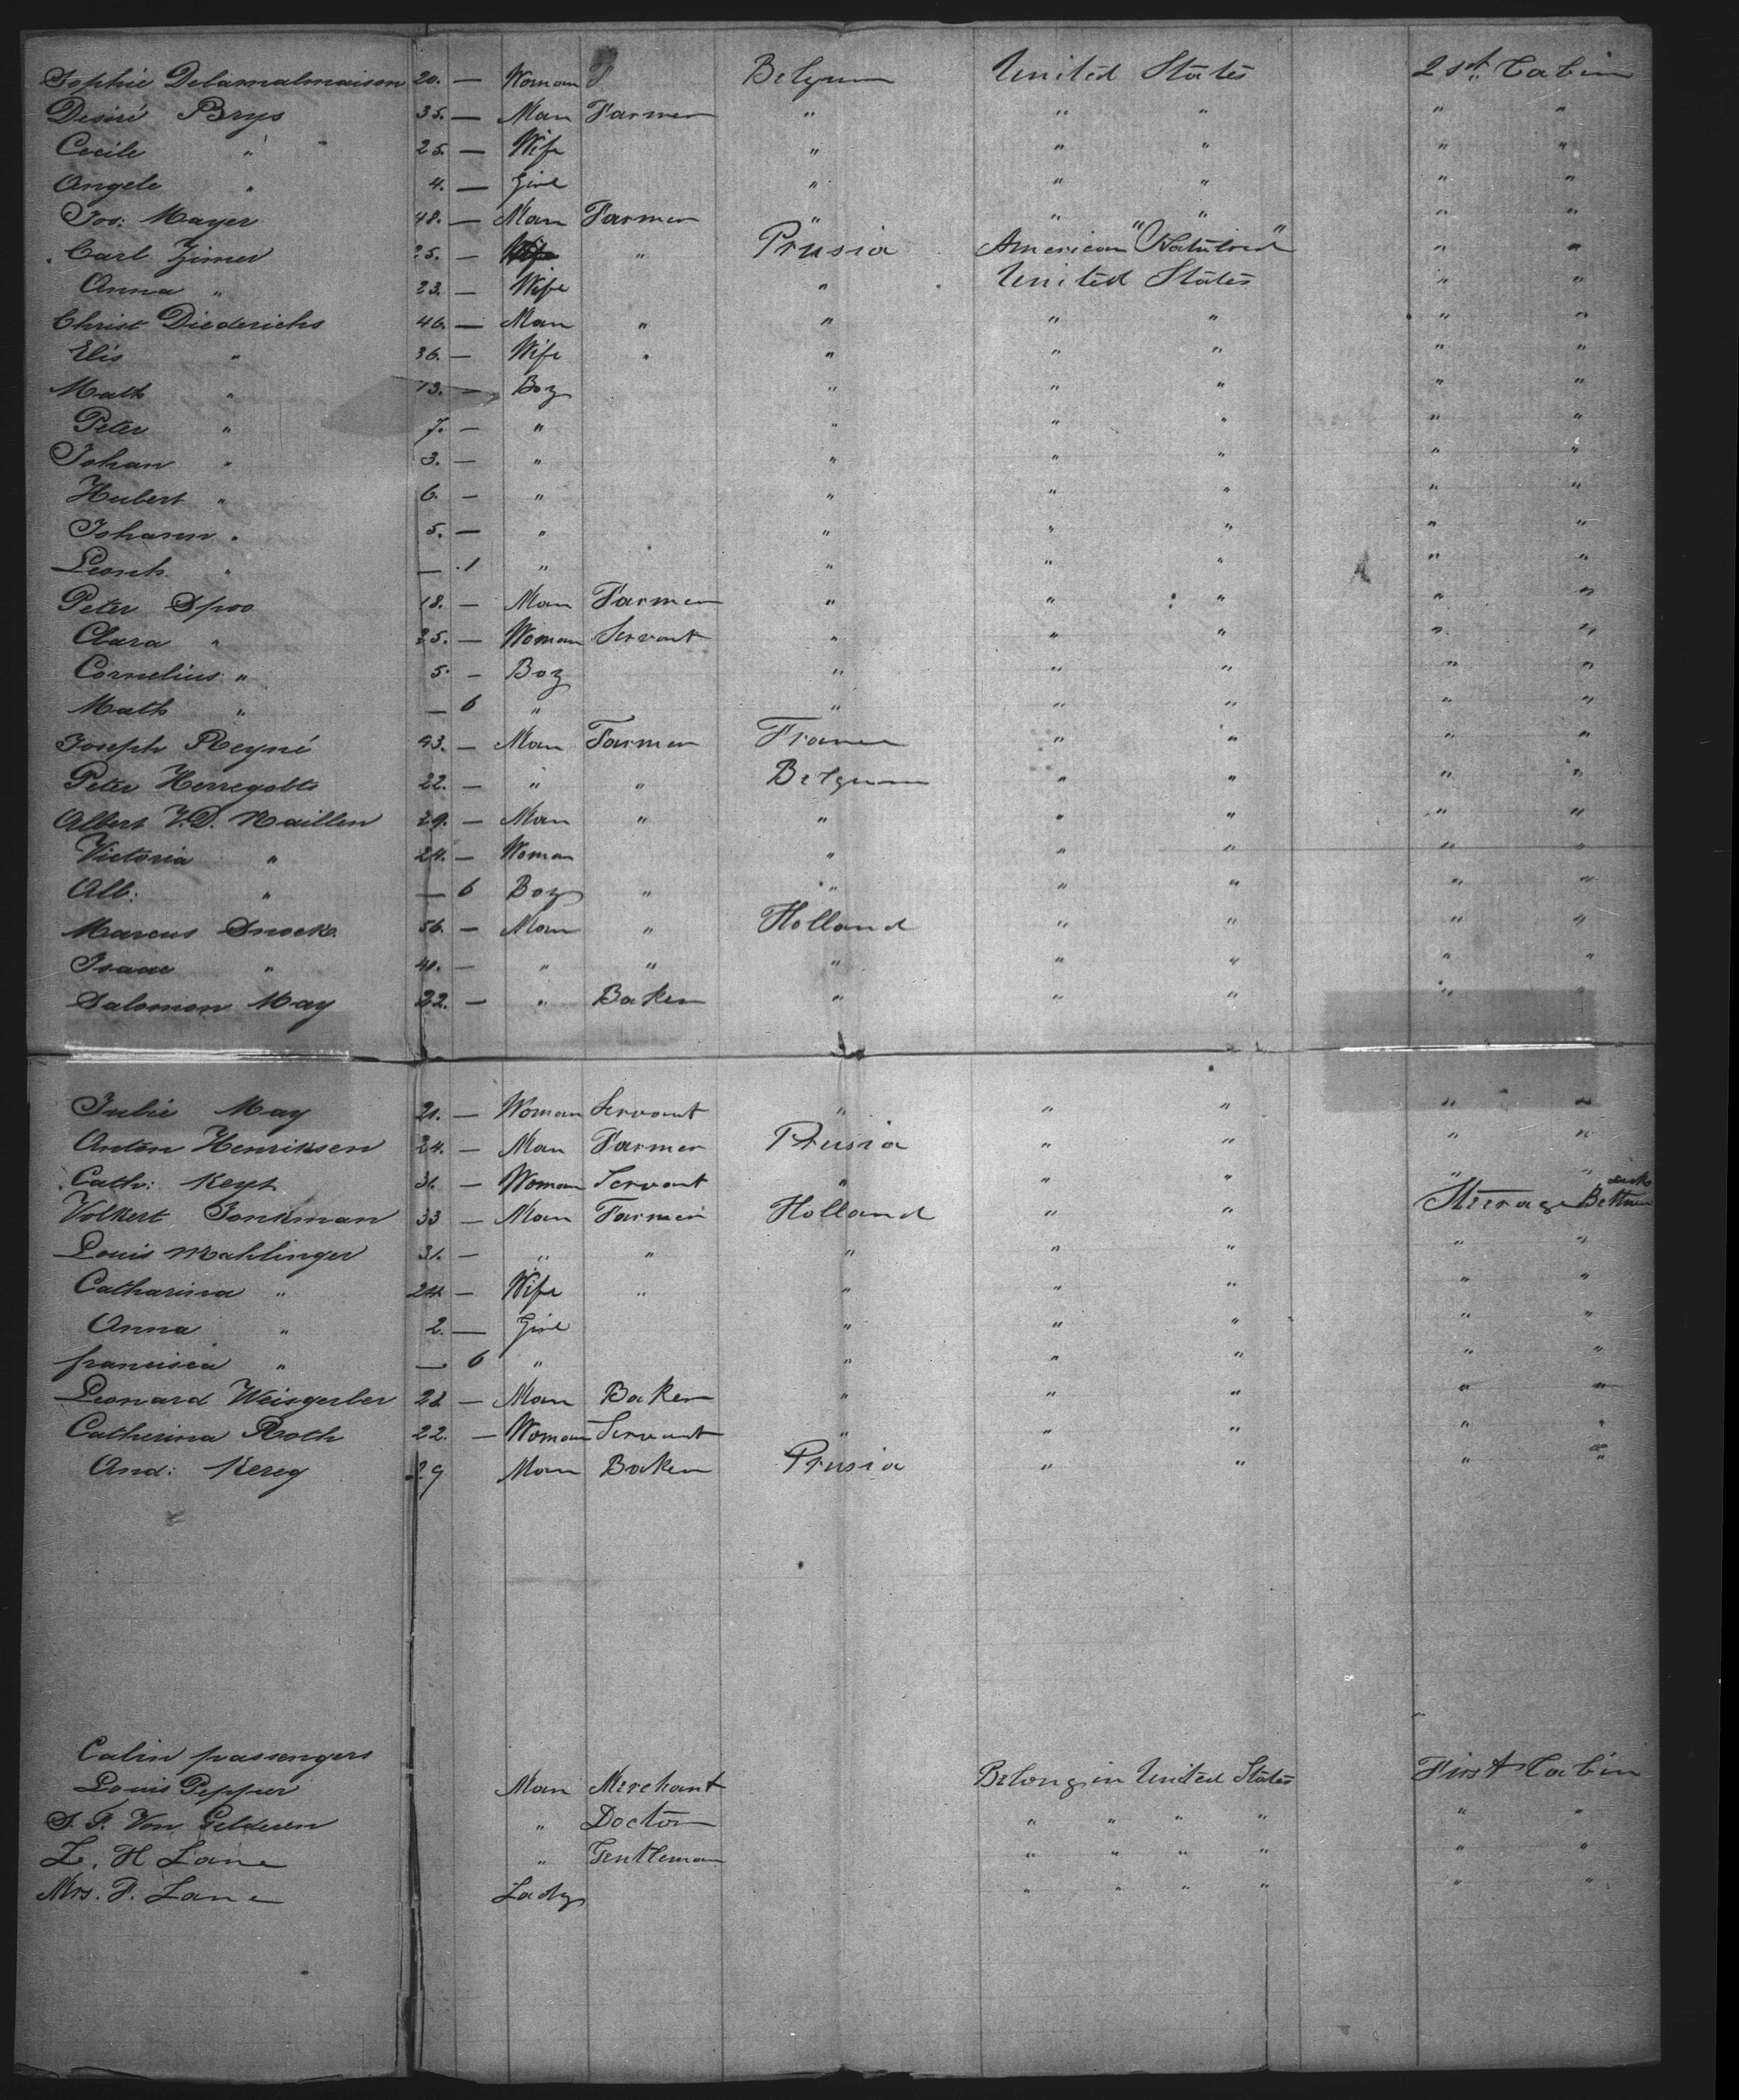 Sophie Delamalmaison 20. — Woman Belgum United States 2st Cabin
Desiré Brys 35. — Man Farmer " " " " "
Cecile " 25. — Wife " " " " "
Angele " 4. — Girl " " " " "
Jos: Mayer 48. — Man Farmer " " " " "
Carl Zimer 25. — " Prusia American " " "
Anna " 23. — Wife " United States " "
Christ Diederichs 46. — Man " " " " " "
Elis " 36. — Wife " " " " " "
Math " 13. — Boy " " " " "
Peter " 7. — " " " " " "
Johan " 3. — " " " " " "
Hubert " 6. — " " " " " "
Johann " 5. — " " " " " "
Leonh. " — 1 " " " " " "
Peter Spoo 18. — Man Farmer " " " " "
Clara " 25. — Woman Servant " " " " "
Cornelius " 5 — Boy " " " " "
Math " — 6 " " " " " "
Joseph Reyné 43. — Man Farmer France " " " "
Peter Herregobts 22. — " " Belgum " " " "
Albert V.D. Naillen 29. — Man " " " " " "
Victoria " 24. — Woman " " " " "
Alb: " — 6 Boy " " " " " "
Marcus Snoek 56. — Man " Holland " " " "
Isaac " 41. — " " " " " " "
Salomon May 22. — " Baker " " " " "
Julie May 21. — Woman Servant " " " " "
Anton Henriksen 24. — Man Farmer Prusia " " " "
Cath: Keyh 31. — Woman Servant " " " " "
Volkert Jonkman 33 — Man Farmer Holland " " Steerage Between decks
Louis Mahlinger 31. — " " " " " " "
Catharina " 24 — Wife " " " " " "
Anna " 2. — Girl " " " " "
francisca " — 6 " " " " " "
Leonard Weisgerber 28 — Man Baker " " " " "
Catherina Roth 22. — Woman Servant " " " " "
And: Kereg 29 Man Baker Prusia " " " "
Cabin passengers
Louis Pepper Man Merchant Belong in United States First Cabin
S. F. Von Gelderen " Doctor " " " " " "
L. H Lane " Gentleman " " " " " "
Mrs. F. Lane Lady " " " " " "